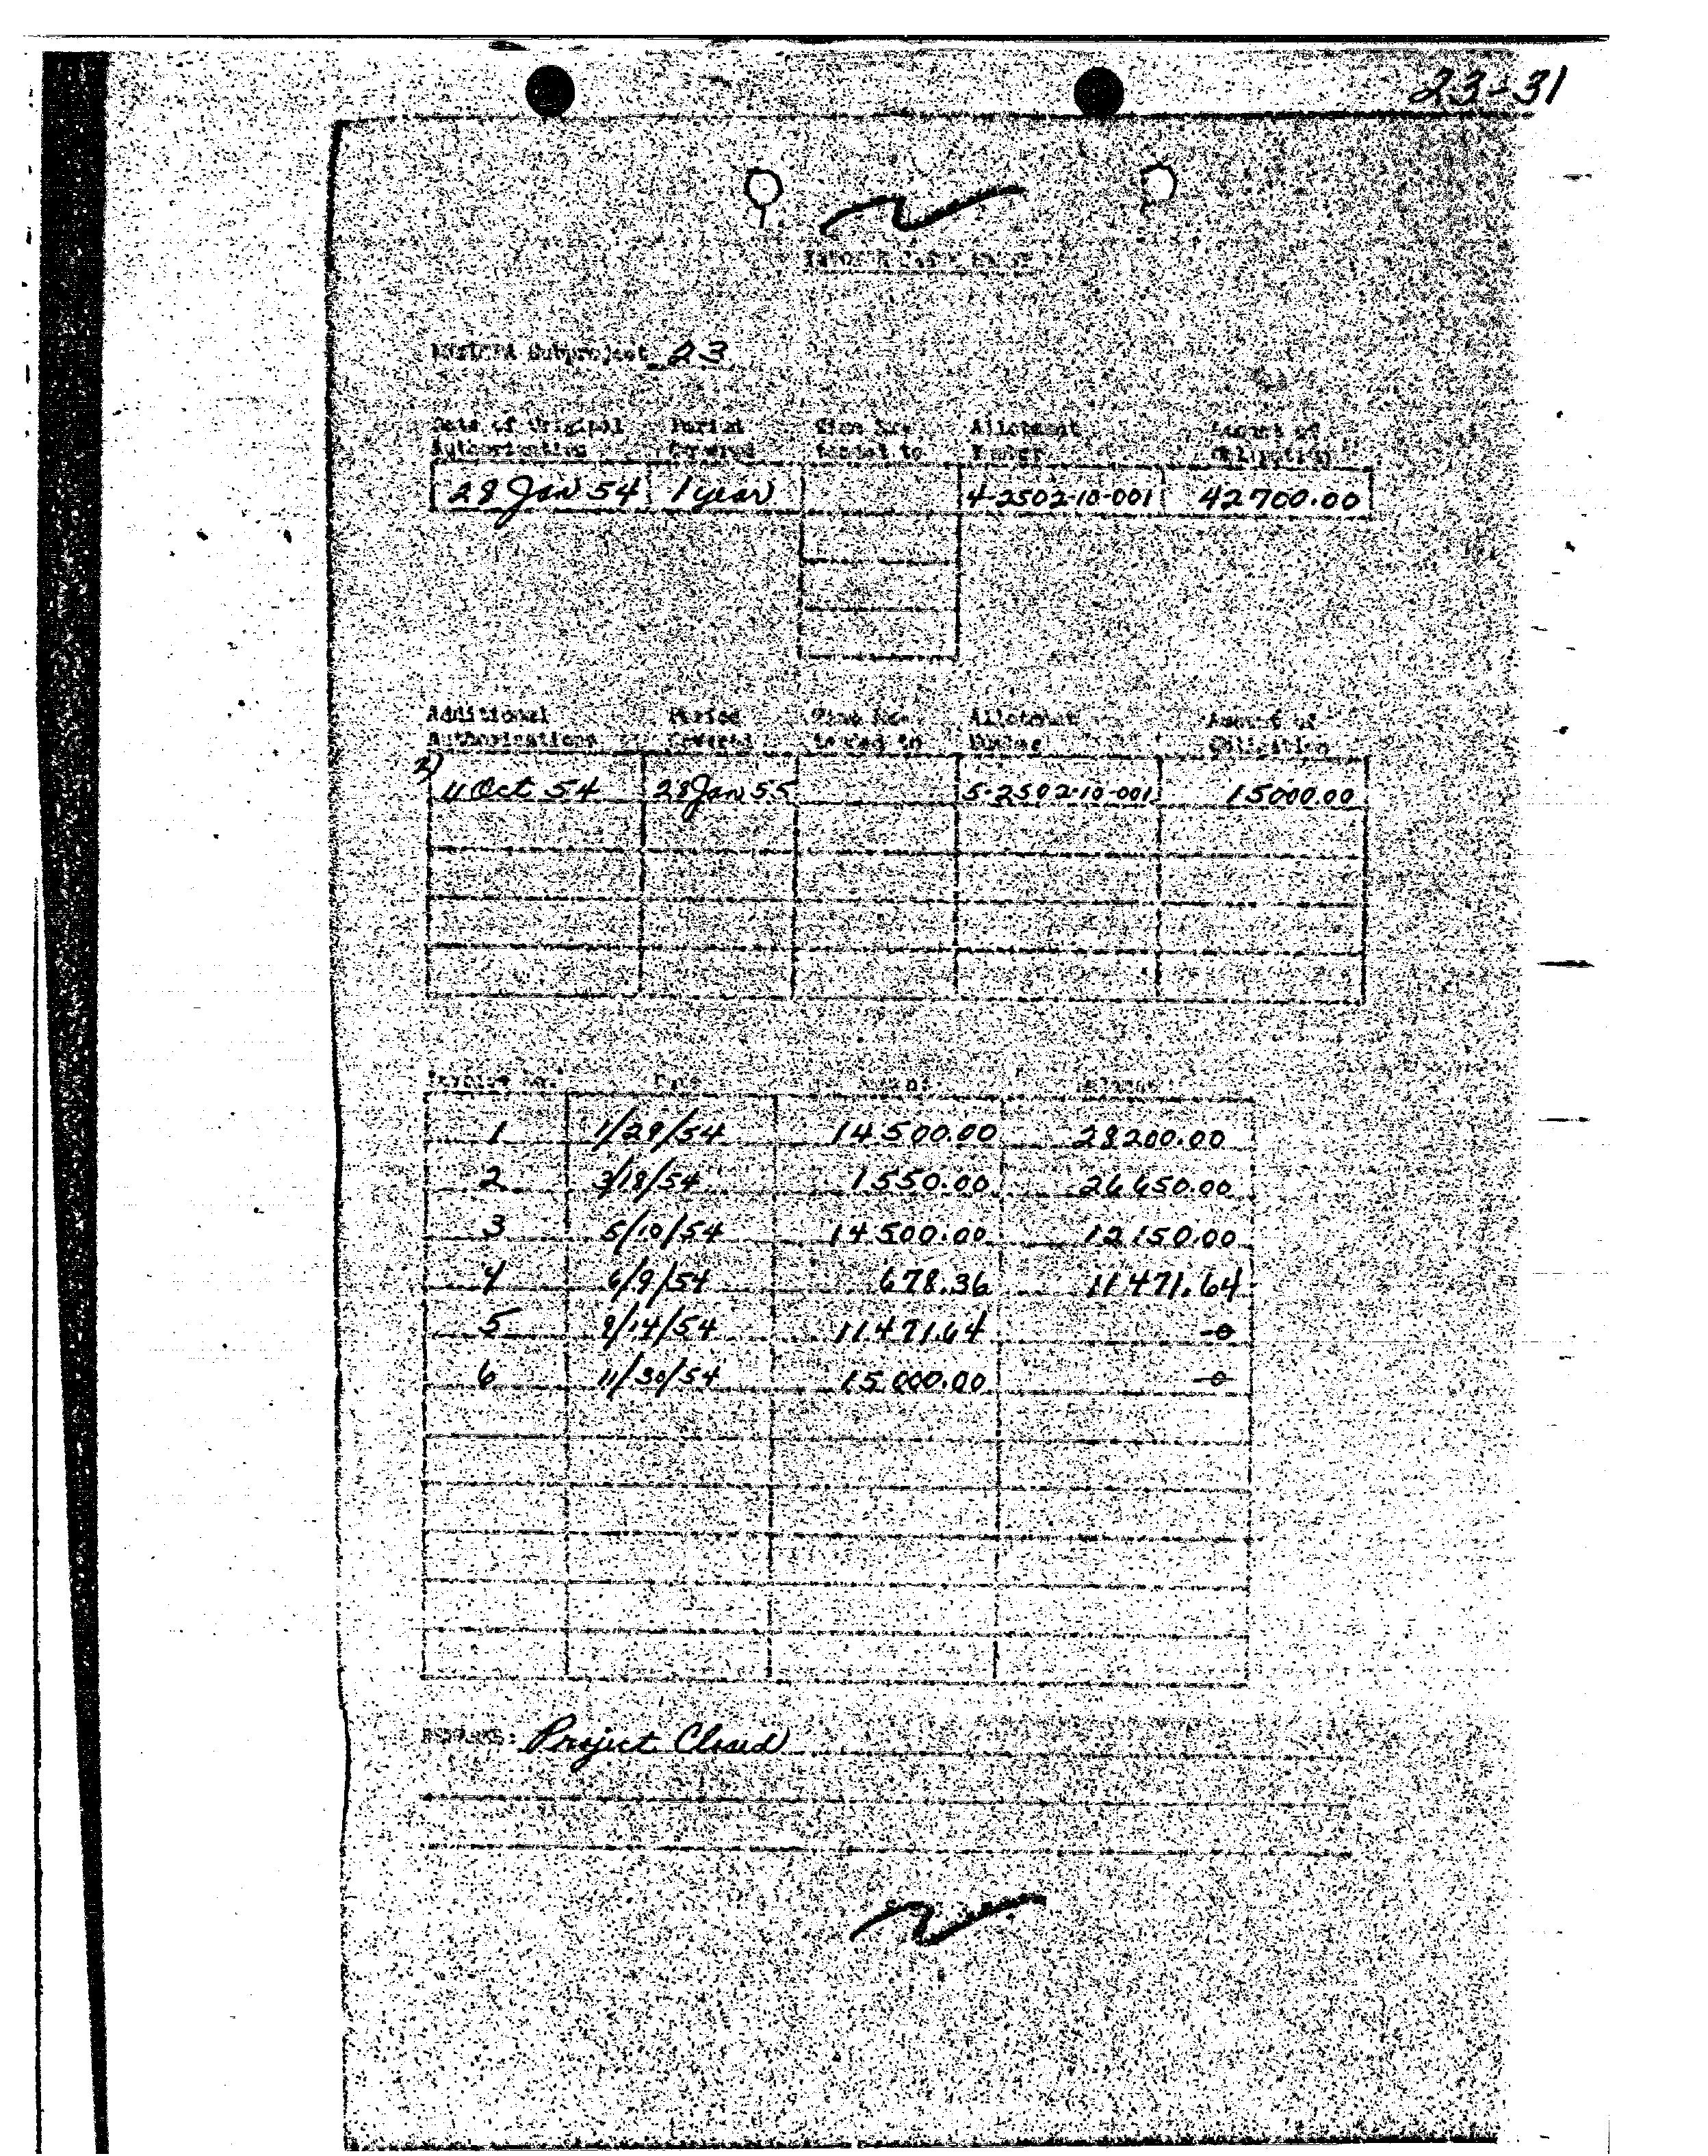 23-31
Subproject 23
Date of Original Period Time Ex- Allotment Amount of
Authorization Covered tended to Number Obligation
28 Jan 54 1 year 4-2502-10-001 42700.00
Additional Period Time Ex- Allotment Amount of
Authorizations Covered tended to Number Obligation
2) 11 Oct 54 28 Jan 55 5-2502-10-001 15000.00
Invoice No. Date Amount Balance
1 1/29/54 14500.00 28200.00
2 3/18/54 1550.00 26650.00
3 5/10/54 14500.00 12150.00
4 6/9/54 678.36 11471.64
5 9/14/54 11471.64 -0-
6 11/30/54 15000.00 -0-
REMARKS: Project Closed